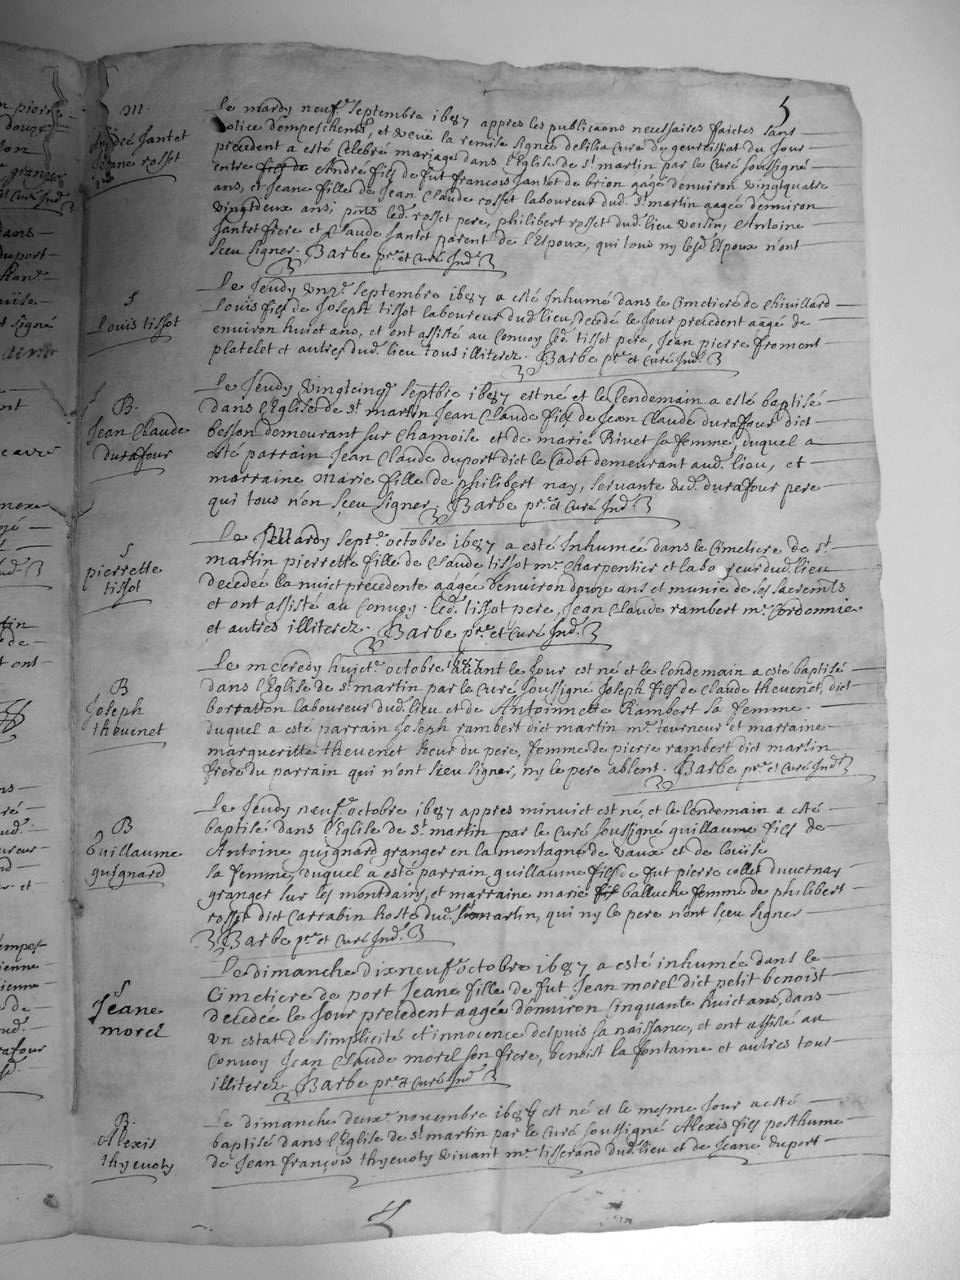 5
M.
André Jantet
Jeane rosset
Le mardy neuf.e septembre 1687 appres les publicaons necessaires faictes sans
notice d'empeschemt, et veüe la remise signée delilia Curé de geurissiat du Jour
precedent a esté Celebré mariage dans l'Eglise de st martin par le Curé soussigné
entre André fils de fut françois Jantet de brion aagé d'environ vingtquatre
ans, et Jeane fille de Jean Claude rosset laboureur dud. st martin aagée d'environ
vingtdeux ans, pnts led. rosset pere, philibert rosset dud. lieu voisin, Antoine
Jantet frere et Claude Jantet parent de l'Epoux, qui tous ny lesd. Epoux n'ont
sceu signer. Barbe pre et Curé Ind.
S
Louis tissot
Le Jeudy unze septembre 1687 a esté Inhumé dans le Cimetiere de Chivillard
Louis fils de Joseph tissot laboureur dud. lieu, decedé le Jour precedent aagé de
environ huict ans, et ont assisté au Convoy led. tissot pere, Jean pierre froment
platelet et autres dud. lieu tous illiterez. Barbe pre et Curé Ind.
B.
Jean Claude
durafour
Le Jeudy vingtcinqe septbre 1687 est né et le lendemain a esté baptisé
dans l'Eglise de st martin Jean Claude fils de Jean Claude durafour dict
besson demeurant sur Chamoise et de marie Rivet sa femme, duquel a
esté parrain Jean Claude duport dict le Cadet demeurant aud. lieu, et
marraine Marie fille de philibert nay, servante dud. durafour pere
qui tous n'on sceu signer, Barbe pre et Curé Ind.
S
pierrette
tissot
Le Mardy sept.e octobre 1687 a esté Inhumée dans le Cimetiere de st
martin pierrette fille de Claude tissot me Charpentier et laboureur dud. lieu
decedée la nuict precedente aagée d'environ douze ans et munie de ses sacremts
et ont assisté au Convoy led. tissot pere, Jean Claude rambert me Cordonnie
et autres illiterez. Barbe pre et Curé Ind.
B
Joseph
thevenet
Le mecredy huict.e octobre 1687 avant le Jour est né et le lendemain a esté baptisé
dans l'Eglise de st martin par le Curé soussigné Joseph fils de Claude thevenet, dict
borratton laboureur dud. lieu et de Antoinnette Rambert sa femme.
duquel a esté parrain Joseph rambert dict martin me tourneur et marraine
margueritte thevenet soeur du pere, femme de pierre rambert dict martin
frere du parrain qui n'ont sceu signer, ny le pere absent. Barbe pre et Curé Ind.
B
Guillaume
guignard
Le Jeudy neuf.e octobre 1687 appres minuict est né, et le lendemain a esté
baptisé dans l'Eglise de st martin par le Curé soussigné guillaume fils de
Antoine guignard granger en la montagne de vaux et de louise
sa femme, duquel a esté parrain guillaume fils de fut pierre collet ducernay
granger sur les montdains, et marraine marie balluche femme de philibert
rosset dict Carrabin hoste dud. st martin, qui ny le pere n'ont sceu signer
Barbe pre et Curé Ind.
S
Jeane
morel
Le dimanche dixneuf.e octobre 1687 a esté inhumée dans le
Cimetiere de port Jeane fille de fut Jean morel dict petit benoist
decedée le Jour precedent aagée d'environ Cinquante huict ans, dans
un estat de simplicité et innocence depuis sa naissance, et ont assisté au
Convoy Jean Claude morel son frere, benoist la fontaine et autres tous
illiterez. Barbe pre et Curé Ind.
B.
Alexis
thyevoty
Le dimanche deuxe novembre 1687 est né et le mesme Jour a esté
baptisé dans l'Eglise de st martin par le Curé soussigné Alexis fils posthume
de Jean françois thyevoty vivant me tisserand dud. lieu et de Jeane duport